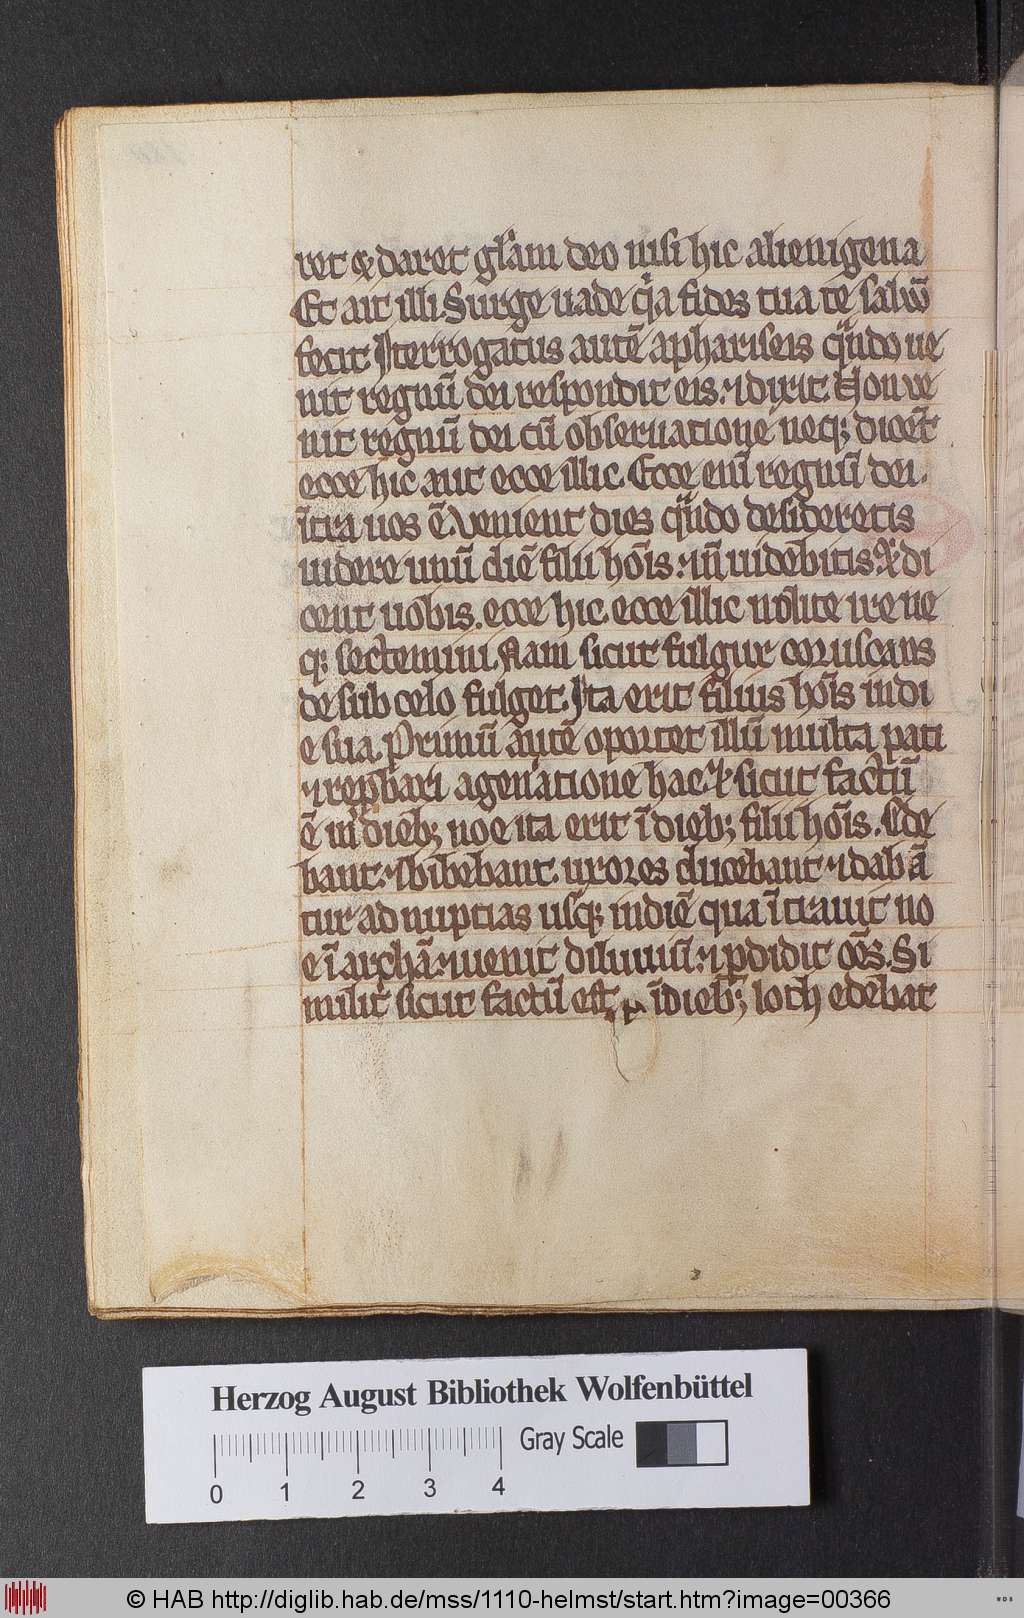 ret ⁊ daret gl'am deo nisi hic alienigena
Et ait illi Surge uade q'a fides tua te saluū
fecit Iterrogatus autē a phariseis qn̄do ue
nit regnū dei respondit eis. ⁊ dixit. Non ve
nit regnū dei cū obseruatione neq; dicēt
ecce hic aut ecce illic. Ecce eni regnū dei
ītra uos ē. Venient dies qn̄do desideretis
uidere unū diē filii hōis. ⁊ n̄ uidebitis. ⁊ di
cent uobis. ecce hic. ecce illic nolite ire ne
q; sectemini. Nam sicut fulgur coruscans
de sub celo fulget. Ita erit filius hōis in di
e sua. Primū autē oportet illū multa pati
⁊ rep̄bari a gen'atione hac. ⁊ sicut factū
ē in dieb; noe ita erit ī dieb; filii hōis. Ede
bant. ⁊ bibebant. uxores ducebant ⁊ dabā
tur ad nuptias usq; in diē qua ītrauit no
e ī archā. ⁊ uenit diluuiū. ⁊ p̄didit oēs. Si
milit' sicut factū est ī dieb; loth edebāt
Herzog August Bibliothek Wolfenbüttel
Gray Scale
0 1 2 3 4
© HAB http://diglib.hab.de/mss/1110-helmst/start.htm?image=00366